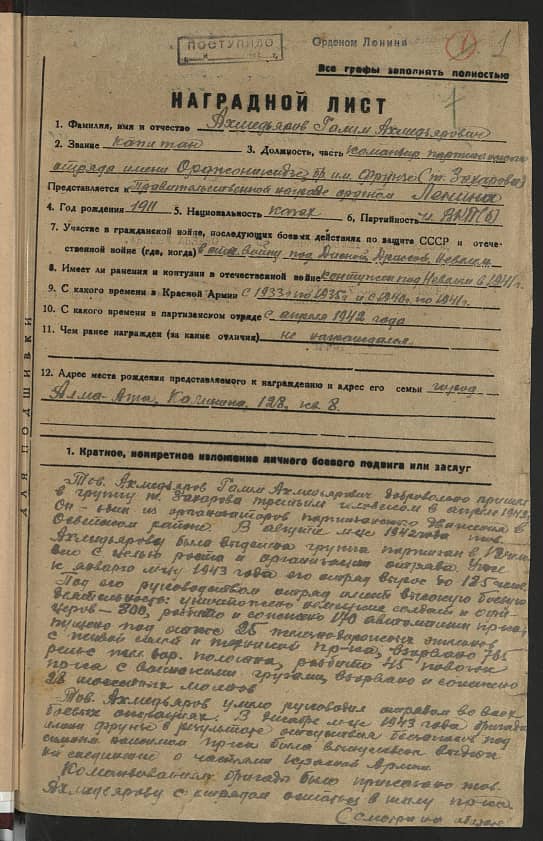 ПОСТУПИЛО
Орденом Ленина
1 1
Все графы заполнять полностью
НАГРАДНОЙ ЛИСТ
1. Фамилия, имя и отчество Ахмедьяров Галим Ахмедьярович
2. Звание капитан 3. Должность, часть командир партизанского
отряда имени Орджоникидзе им. Фрунзе (т. Захарова)
Представляется к Правительственной награде орденом Ленина
4. Год рождения 1911 5. Национальность казах 6. Партийность ч. ВКП(б)
7. Участие в гражданской войне, последующих боевых действиях по защите СССР и отече-
ственной войне (где, когда) в отеч. войну под Невелем
8. Имеет ли ранения и контузии в отечественной войне контужен под Невелем в 1941 г.
9. С какого времени в Красной Армии с 1933 г. по 1935 г. и с 1940 г. по 1941 г.
10. С какого времени в партизанском отряде с апреля 1942 года
11. Чем ранее награжден (за какие отличия) не награждался
12. Адрес места рождения представляемого к награждению и адрес его семьи город
Алма-Ата, Калинина, 128, кв 8.
ДЛЯ ПОДШИВКИ
1. Краткое, конкретное изложение личного боевого подвига или заслуг
Тов. Ахмедьяров Галим Ахмедьярович добровольно пришел
в группу т. Захарова третьим человеком в апреле 1942 г.
Он – один из организаторов партизанского движения в
районе. В августе м-це 1942 года тов.
Ахмедьярову была выделена группа партизан в 12 чело-
век с целью роста и организации отряда. Уже
к январю м-цу 1943 года его отряд вырос до 125 человек.
Под его руководством отряд имеет высокую боевую
деятельность: уничтожено солдат и офи-
церов – 800, разбито и сожжено 170 автомашин пр-ка,
пущено под откос 25 железнодорожных эшелонов
с живой силой и техникой пр-ка, взорвано 785
рельс жел. дор. полотна, разбито 45 повозок
пр-ка с воинскими грузами, взорвано и сожжено
28 шоссейных мостов
Тов. Ахмедьяров умело руководил отрядом во всех
боевых операциях. В декабре м-це 1943 года бригада
имени Фрунзе в результате под
сильным натиском пр-ка была вынуждена
на соединение с частями Красной Армии.
Командованием бригады было приказано тов.
Ахмедьярову с отрядом остаться в тылу пр-ка.
(смотри на обороте)